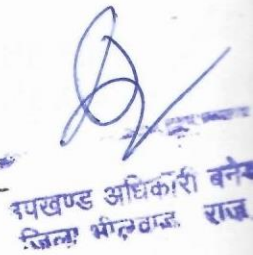 उपखण्ड अधिकारी बनेड
जिला भीलवाड़ा राज